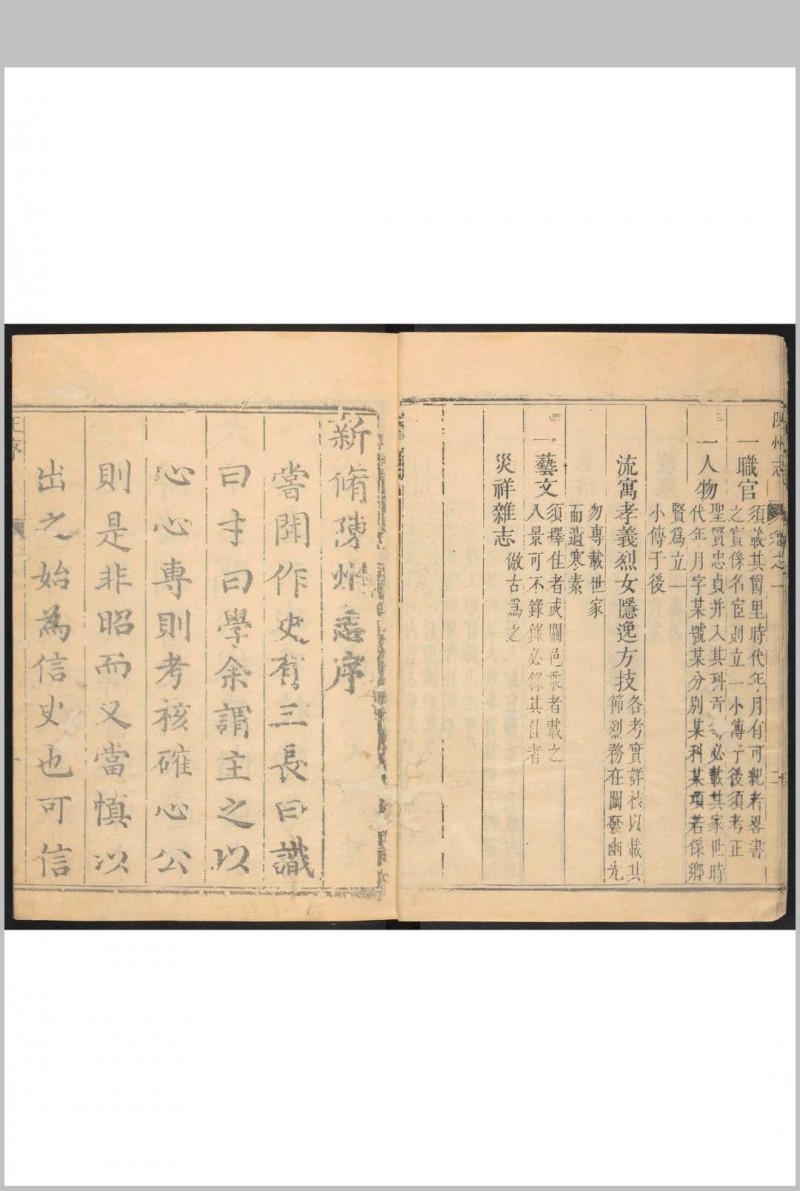 陳州志
卷之一
二
一職官
須載其爵里時代年月有可紀者畧書
之實係名宦則立一小傳于後須考正
一人物
聖賢忠貞并入其科
必載其家世時
代年月字某號某分別某科某項若係鄉
賢爲立一
小傳于後
流寓孝義烈女隱逸方技
各考實詳核以載其
節烈務在闡發幽光
勿專載世家
而遺寒素
一藝文
須擇佳者或關邑乘者載之
八景可不錄錄必擇其佳者
災祥雜志
倣古爲之
新脩陳州志序
嘗聞作史有三長曰識
曰才曰學余謂主之以
心心專則考核確心公
則是非昭而又當慎以
出之始為信史也可信